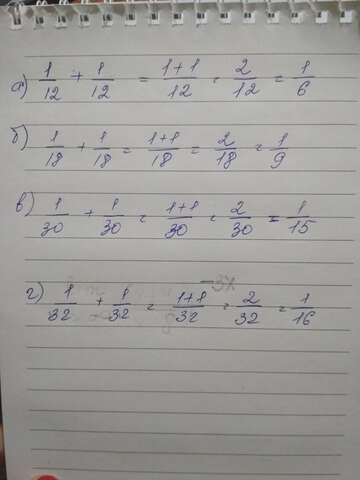 а) 1/12 + 1/12 = 1+1/12 = 2/12 = 1/6
б) 1/18 + 1/18 = 1+1/18 = 2/18 = 1/9
в) 1/30 + 1/30 = 1+1/30 = 2/30 = 1/15
г) 1/32 + 1/32 = 1+1/32 = 2/32 = 1/16